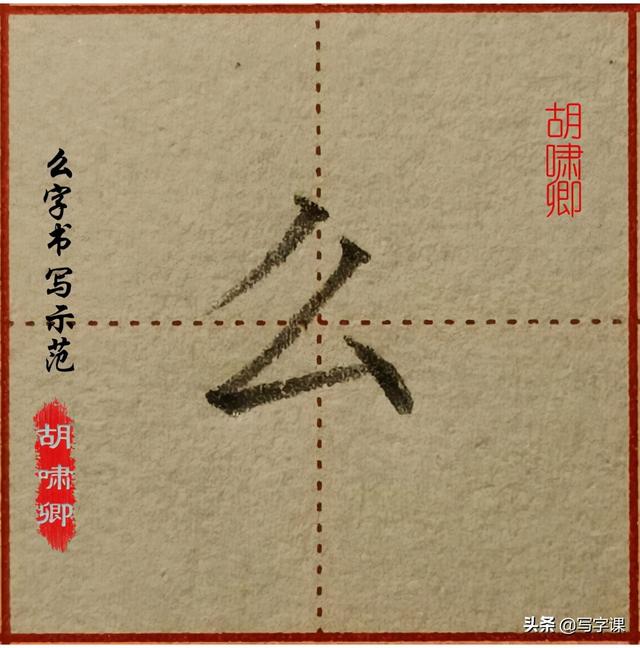 么字书写示范
胡啸卿
么
胡啸卿
头条 @写字课